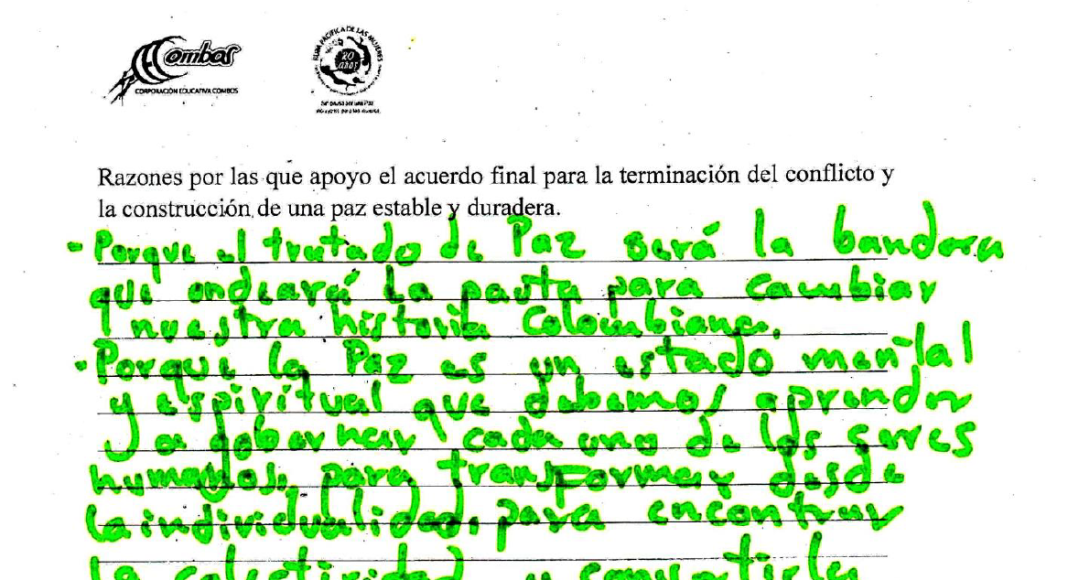 Combos
CORPORACIÓN EDUCATIVA COMBOS
RUTA PACÍFICA DE LAS MUJERES
20 años
Razones por las que apoyo el acuerdo final para la terminación del conflicto y
la construcción de una paz estable y duradera.
- Porque el tratado de Paz será la bandera
que ondeará la pauta para cambiar
nuestra historia Colombiana.
- Porque la Paz es un estado mental
y espiritual que debemos aprender
a gobernar cada uno de los seres
humanos, para transformar desde
la individualidad, para encontrar
la colectividad y convertirla